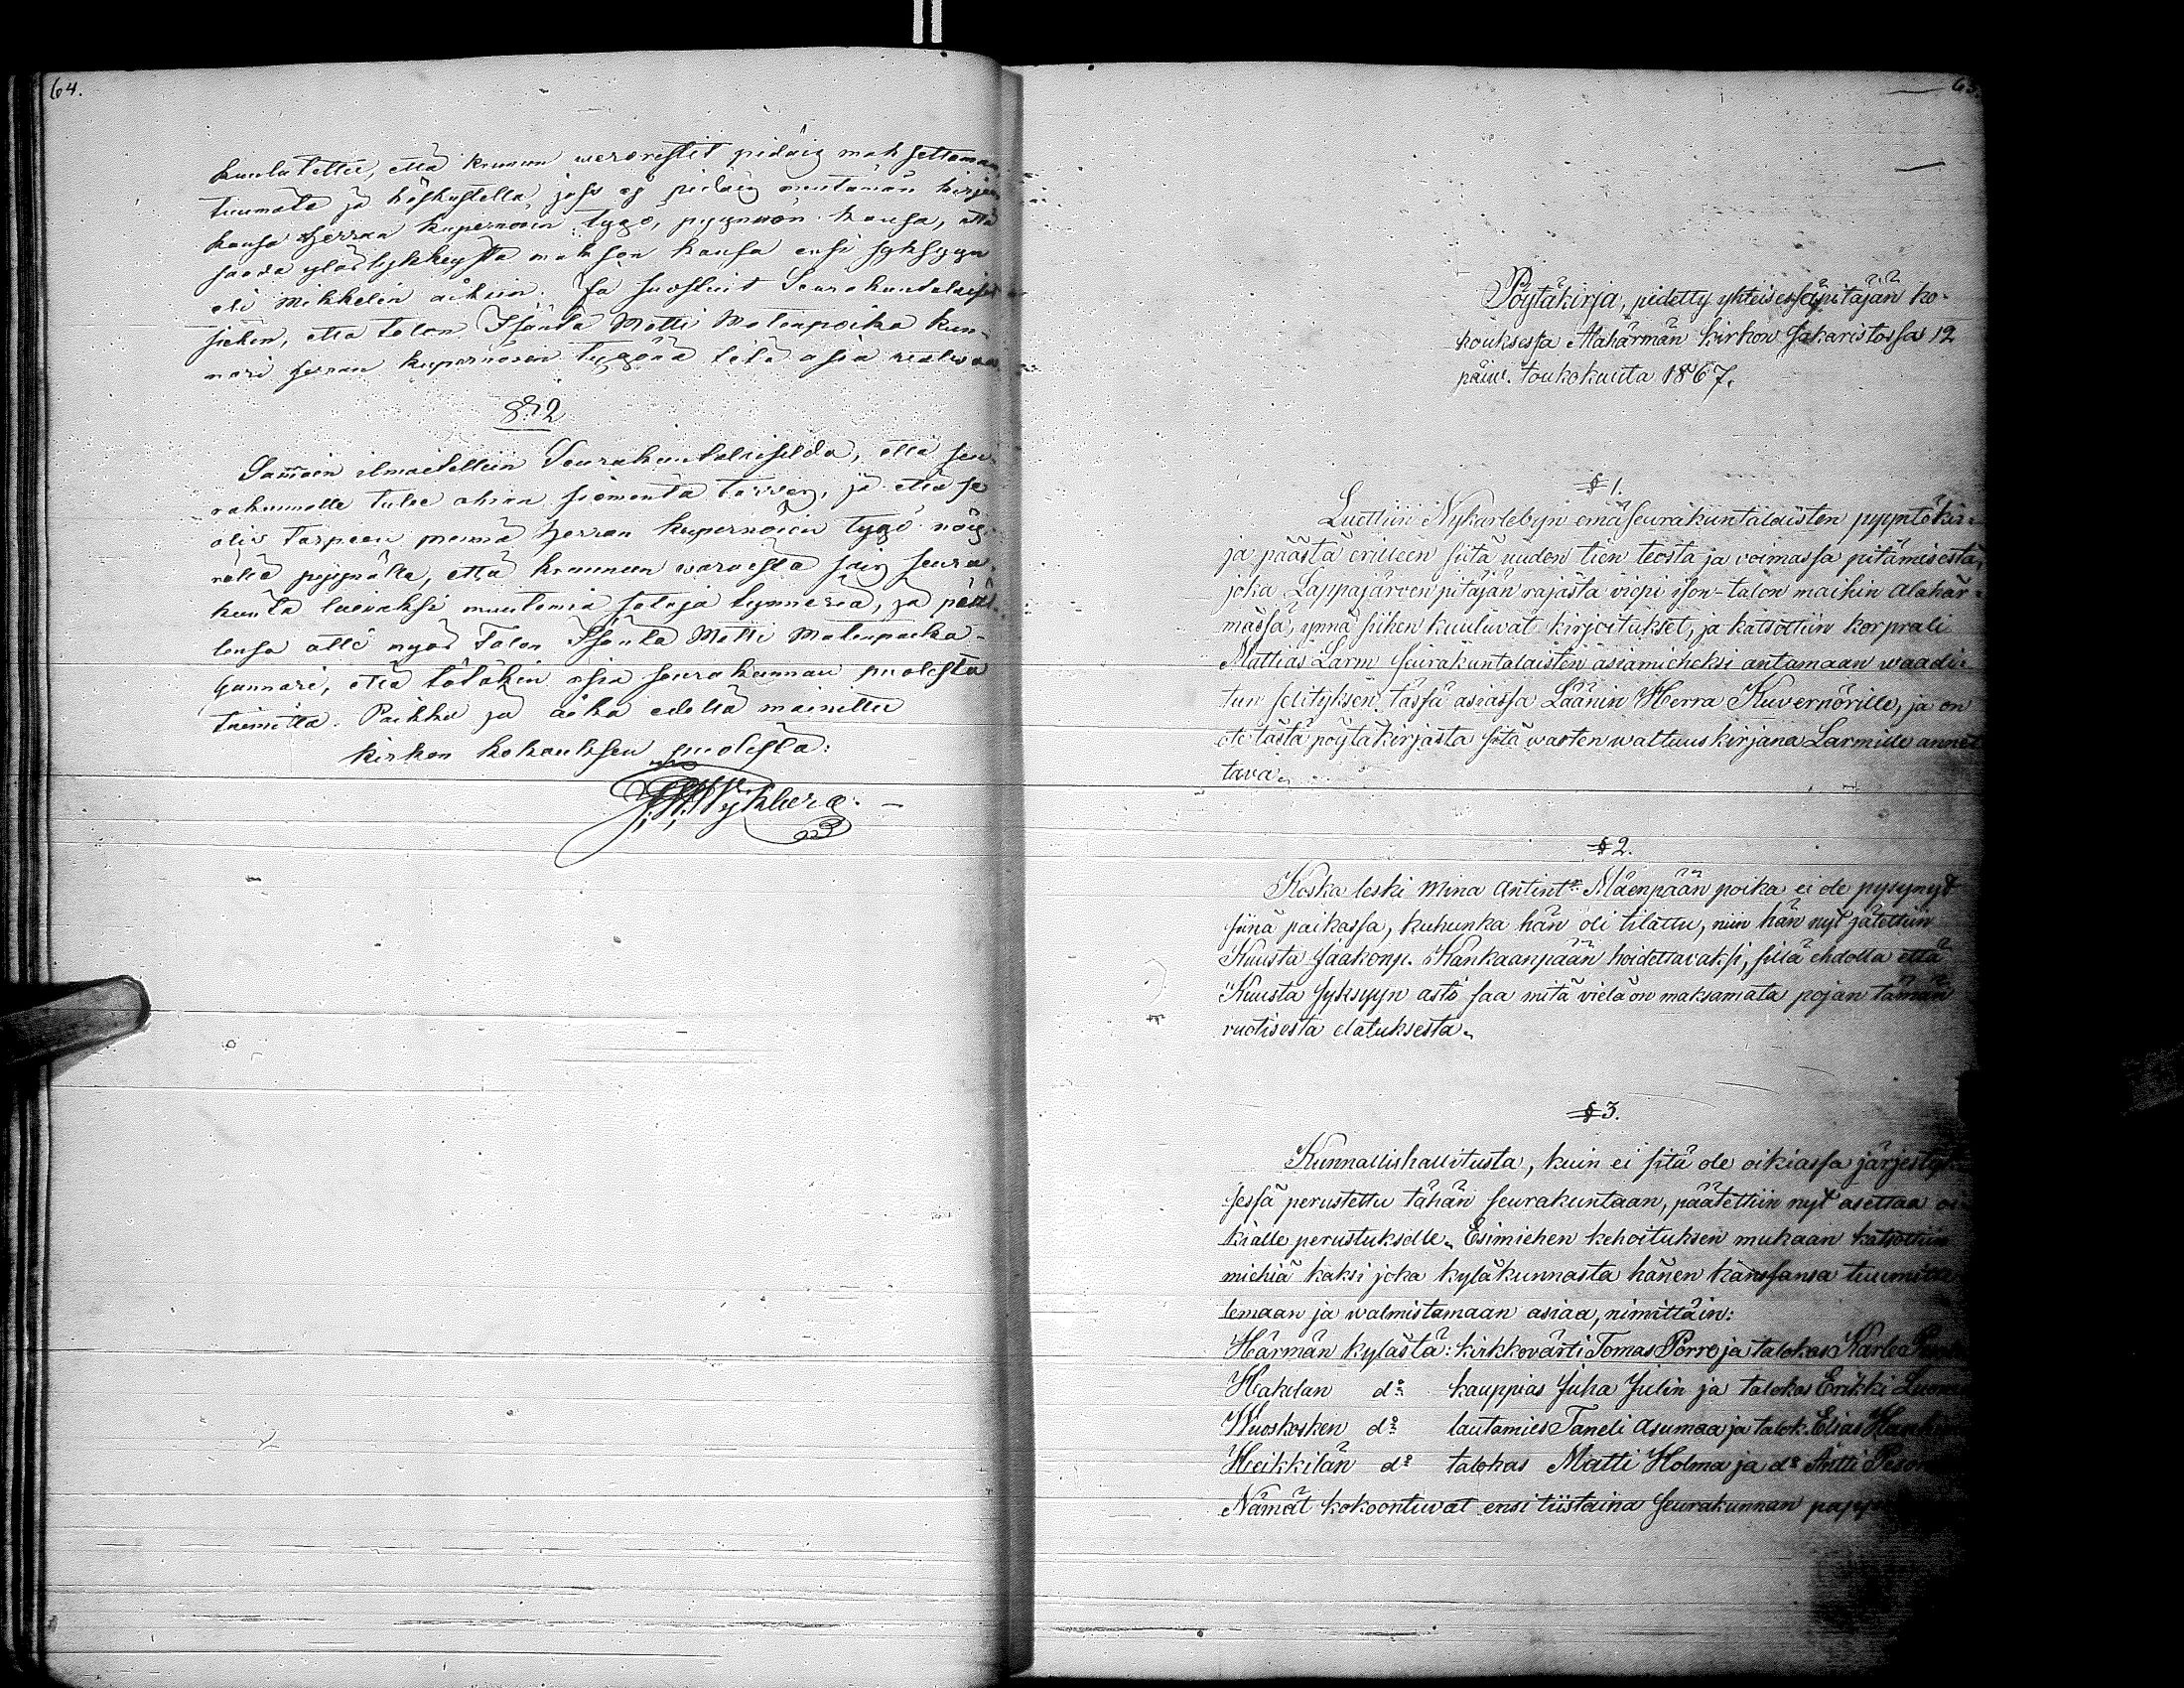 64.
kuulutettu, että kruunun werorestit pidäis maksettaman,
tuumata ja köskustella, joss ej pidäis muutaman kirjan
kansa Herran kupernöörin tygö, pyynnön kansa, että
saada ylöslykkeystä makson kansa ensi syksyyn
eli Mikkelin aikun. Ja suostuit Seurakuntalaiset
siihen, että talon Isäntä Matti Matinpoika Kun-
nari Herran kupernöörin tygönä tätä asia
§ 2
Samoin ilmoitettiin Seurakuntalaisilda, että seu-
rakunnalle tulee ohran siementä tarwes, ja että se
olis tarpeen mennä Herran kupernöörin tygö nöy-
rällä pyynöllä, että kruunun waroesta sais seura-
kunta lainaksi muutamia satoja tynneriä, ja
otti myös Talon Isäntä Matti Matinpoika
Gunnari, että tätäkin asia seurakunnan puolesta
toimitta. Paikka ja aika edellä mainittu
kirkon kokouksen puolesta:
65.
Pöytäkirja, pidetty yhteisessä pitäjän ko-
kouksessa Alahärmän kirkon sakaristossa 12
päiw. toukokuuta 1867.
§ 1.
Luettiin Nykarlebyn emäseurakuntalaisten pyyntökir-
ja päästä erilleen siitä uuden tien teosta ja voimassa pitämisestä,
joka Lappajärven pitäjän rajasta viepi ison-talon maihin alahär-
mässä, ynnä siihen kuuluvat kirjoitukset, ja katsottiin korprali
Mattias Larm seurakuntalaisten asiamieheksi antamaan waadi-
tun selityksen tässä asiassa Läänin Herra Kuvernörille, ja on
ote tästä pöytäkirjasta sitä warten waltuuskirjana Larmille annet
tava.
§ 2.
Koska leski Mina Antint:r Mäenpään poika ei ole pysynyt
siinä paikassa, kuhunka hän oli tilattu, niin hän nyt jätettiin
Kuusta Jaakonp. Kankaanpään hoidettavaksi, sillä ehdolla että
Kuusta syksyyn asti saa mitä vielä on maksamata pojan tämän
vuotisesta elatuksesta.
§ 3.
Kunnallishallitusta, kuin ei sitä ole oikiassa järjestyk
sessä perustettu tähän seurakuntaan, päätettiin nyt asettaa oi-
kialle perustukselle. Esimiehen kehoituksen mukaan katsottiin
miehiä kaksi joka kyläkunnasta hänen kanssansa tuumitte
lemaan ja walmistamaan asiaa, nimittäin:
Härmän kylästä: kirkkovärti Tomas Porre ja talokas Karlo
Hakolan d:o kauppias Juha Julin ja talokas Erikki Luoma
Wuoskosken d:o lautamies Taneli Asumaa ja talok. Elias
Heikkilän d:o talokas Matti Holma ja d:o Antti
Nämät kokoontuwat ensi tiistaina seurakunnan